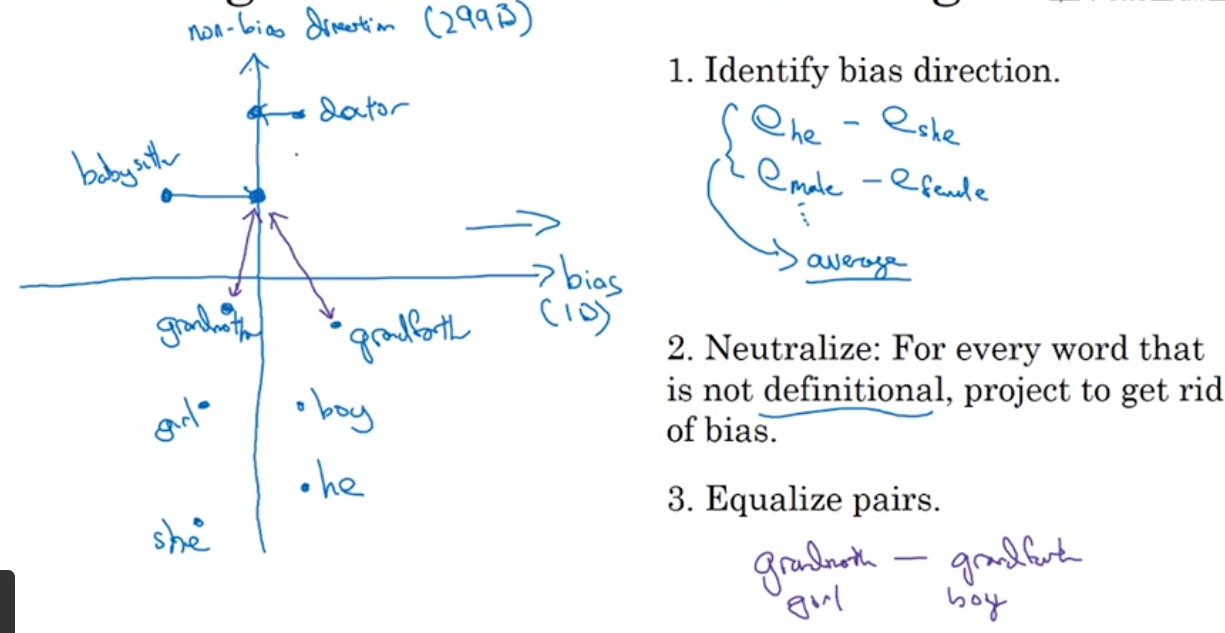 non-bias direction (299D)
doctor
babysitter
bias
(1D)
grandmoth
grandfarth
girl
boy
he
she
1. Identify bias direction.
e he - e she
e male - e female
⋮
average
2. Neutralize: For every word that
is not definitional, project to get rid
of bias.
3. Equalize pairs.
grandmoth — grandfath
girl boy